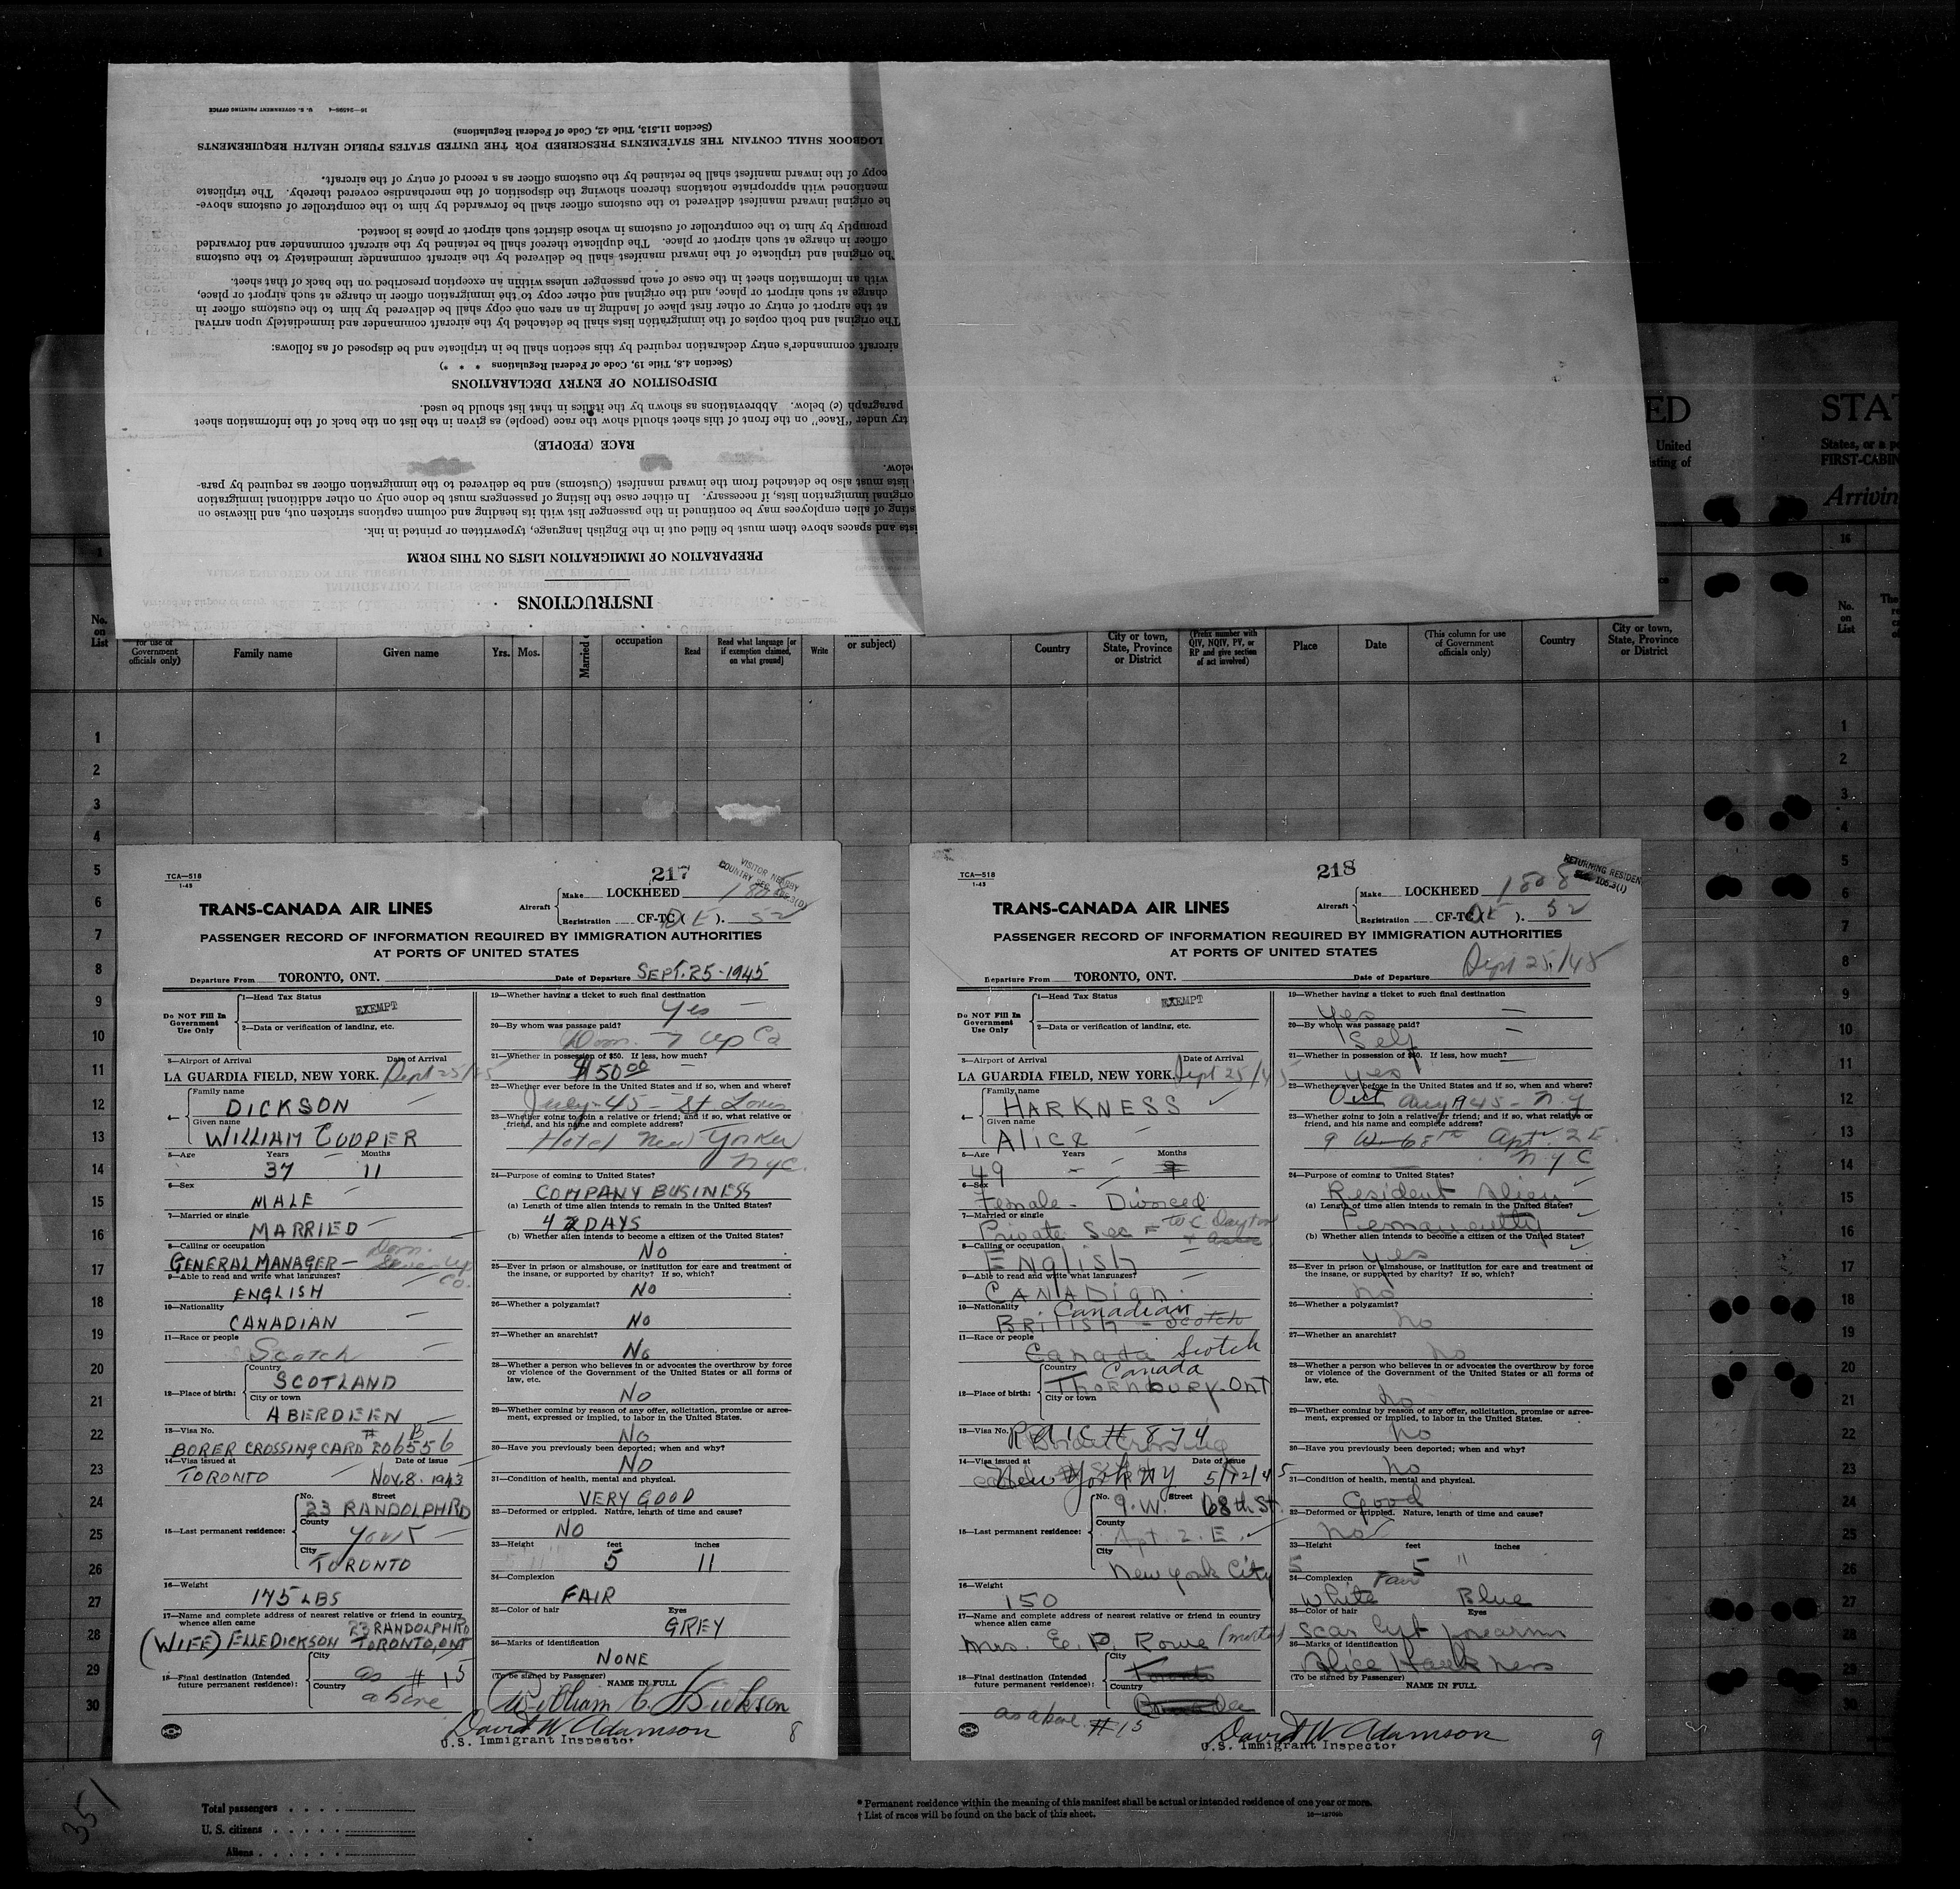 INSTRUCTIONS
PREPARATION OF IMMIGRATION LISTS ON THIS FORM
sts and spaces above them must be filled out in the English language, typewritten or printed in ink.
sting of alien employees may be continued in the passenger list with its heading and column captions stricken out, and likewise on
original immigration lists, if necessary. In either case the listing of passengers must be done only on other additional immigration
lists must also be detached from the inward manifest (Customs) and be delivered to the immigration officer as required by para-
below.
RACE (PEOPLE)
try under "Race" on the front of this sheet should show the race (people) as given in the list on the back of the information sheet
paragraph (c) below. Abbreviations as shown by the italics in that list should be used.
DISPOSITION OF ENTRY DECLARATIONS
(Section 4.8, Title 19, Code of Federal Regulations * * *)
aircraft commander's entry declaration required by this section shall be in triplicate and be disposed of as follows:
The original and both copies of the immigration lists shall be detached by the aircraft commander and immediately upon arrival
at the airport of entry or other first place of landing in an area one copy shall be delivered by him to the customs officer in
charge at such airport or place, and the original and other copy to the immigration officer in charge at such airport or place,
with an information sheet in the case of each passenger unless within an exception prescribed on the back of that sheet.
The original and triplicate of the inward manifest shall be delivered by the aircraft commander immediately to the customs
officer in charge at such airport or place. The duplicate thereof shall be retained by the aircraft commander and forwarded
promptly by him to the comptroller of customs in whose district such airport or place is located.
he original inward manifest delivered to the customs officer shall be forwarded by him to the comptroller of customs above-
mentioned with appropriate notations thereon showing the disposition of the merchandise covered thereby. The triplicate
copy of the inward manifest shall be retained by the customs officer as a record of entry of the aircraft.
LOGBOOK SHALL CONTAIN THE STATEMENTS PRESCRIBED FOR THE UNITED STATES PUBLIC HEALTH REQUIREMENTS
(Section 11.513, Title 42, Code of Federal Regulations)
U. S. GOVERNMENT PRINTING OFFICE
ED STAT
United States, or a p
sting of FIRST-CABIN
Arrivin
No. on List
for use of Government officials only)
Family name
Given name
Yrs. Mos.
Married
occupation
Read
Read what language [or if exemption claimed, on what ground]
Write
or subject)
Country
City or town, State, Province or District
(Prefix number with QIV, NQIV, PV, or RP and give section of act involved)
Place
Date
(This column for use of Government officials only)
Country
City or town, State, Province or District
16
No. on List
1
2
3
4
5
6
7
8
9
10
11
12
13
14
15
16
17
18
19
20
21
22
23
24
25
26
27
28
29
30
TCA—518
1-43
217
VISITOR NEARBY
COUNTRY SEC.
Aircraft Make LOCKHEED 1808
Registration CF-TC( ). 52
TRANS-CANADA AIR LINES
PASSENGER RECORD OF INFORMATION REQUIRED BY IMMIGRATION AUTHORITIES
AT PORTS OF UNITED STATES
Departure From TORONTO, ONT. Date of Departure SEPT. 25-1945
Do NOT Fill In Government Use Only
1—Head Tax Status EXEMPT
2—Data or verification of landing, etc.
3—Airport of Arrival Date of Arrival
LA GUARDIA FIELD, NEW YORK. Sept 25/45
4— Family name
DICKSON
Given name
WILLIAM COOPER
5—Age Years Months
37 11
6—Sex
MALE
7—Married or single
MARRIED
8—Calling or occupation
GENERAL MANAGER — Dom. Seven Up Co.
9—Able to read and write what languages?
ENGLISH
10—Nationality
CANADIAN
11—Race or people
Scotch
12—Place of birth: Country
SCOTLAND
City or town
ABERDEEN
13—Visa No.
BORER CROSSING CARD # B 206556
14—Visa issued at Date of issue
TORONTO NOV. 8. 1943
15—Last permanent residence: No. Street
23 RANDOLPH RD
County
York
City
TORONTO
16—Weight
175 LBS
17—Name and complete address of nearest relative or friend in country whence alien came
23 RANDOLPH RD
(WIFE) ELLE DICKSON TORONTO, ONT
18—Final destination (Intended future permanent residence): City
as # 15
Country
above
19—Whether having a ticket to such final destination
Yes
20—By whom was passage paid?
Dom. 7 Up Co
21—Whether in possession of $50. If less, how much?
$50.00
22—Whether ever before in the United States and if so, when and where?
July-45 - St Louis
23—Whether going to join a relative or friend; and if so, what relative or friend, and his name and complete address?
Hotel New Yorker
NYC.
24—Purpose of coming to United States?
COMPANY BUSINESS
(a) Length of time alien intends to remain in the United States?
4 2 DAYS
(b) Whether alien intends to become a citizen of the United States?
NO
25—Ever in prison or almshouse, or institution for care and treatment of the insane, or supported by charity? If so, which?
NO
26—Whether a polygamist?
NO
27—Whether an anarchist?
NO
28—Whether a person who believes in or advocates the overthrow by force or violence of the Government of the United States or all forms of law, etc.
NO
29—Whether coming by reason of any offer, solicitation, promise or agreement, expressed or implied, to labor in the United States.
NO
30—Have you previously been deported; when and why?
NO
31—Condition of health, mental and physical.
VERY GOOD
32—Deformed or crippled. Nature, length of time and cause?
NO
33—Height feet inches
5 11
34—Complexion
FAIR
35—Color of hair Eyes
GREY
36—Marks of identification
NONE
(To be signed by Passenger) NAME IN FULL
William C. Dickson
David W. Adamson
U.S. Immigrant Inspector
8
TCA—518
1-43
218
RETURNING RESIDEN
106.3(1)
Aircraft Make LOCKHEED 1808
Registration CF-TC( ). 52
TRANS-CANADA AIR LINES
PASSENGER RECORD OF INFORMATION REQUIRED BY IMMIGRATION AUTHORITIES
AT PORTS OF UNITED STATES
Departure From TORONTO, ONT. Date of Departure Sept 25/45
Do NOT Fill In Government Use Only
1—Head Tax Status EXEMPT
2—Data or verification of landing, etc.
3—Airport of Arrival Date of Arrival
LA GUARDIA FIELD, NEW YORK. Sept 25/45
4— Family name
HARKNESS
Given name
Alice
5—Age Years Months
49
6—Sex
Female - Divorced
7—Married or single
Private Sec W.C. Dayton
8—Calling or occupation
English
9—Able to read and write what languages?
CANADIAN.
10—Nationality Canadian
BRITISH - Scotch
11—Race or people
Canada Scotch
12—Place of birth: Country Canada
Thornbury. Ont
City or town
13—Visa No. # 874
14—Visa issued at Date of issue
New York NY 5/12/45
15—Last permanent residence: No. Street
9. W. 68th St.
County
Apt. 2. E.
City
New York City
16—Weight
150
17—Name and complete address of nearest relative or friend in country whence alien came
Mrs. E. P. Rowe
18—Final destination (Intended future permanent residence): City
Toronto
Country
Canada
as above # 15
19—Whether having a ticket to such final destination
Yes
20—By whom was passage paid?
Self
21—Whether in possession of $50. If less, how much?
Yes
22—Whether ever before in the United States and if so, when and where?
Oct Aug 1945 - N.Y
23—Whether going to join a relative or friend; and if so, what relative or friend, and his name and complete address?
9 W-68th Apt 2E
N.Y.C
24—Purpose of coming to United States?
Resident Alien
(a) Length of time alien intends to remain in the United States?
Permanently
(b) Whether alien intends to become a citizen of the United States?
Yes
25—Ever in prison or almshouse, or institution for care and treatment of the insane, or supported by charity? If so, which?
No
26—Whether a polygamist?
No
27—Whether an anarchist?
No
28—Whether a person who believes in or advocates the overthrow by force or violence of the Government of the United States or all forms of law, etc.
No
29—Whether coming by reason of any offer, solicitation, promise or agreement, expressed or implied, to labor in the United States.
No
30—Have you previously been deported; when and why?
No
31—Condition of health, mental and physical.
Good
32—Deformed or crippled. Nature, length of time and cause?
No
33—Height feet inches
5 5 "
34—Complexion Fair
White Blue
35—Color of hair Eyes
Scar left forearm
36—Marks of identification
Alice Harkness
(To be signed by Passenger) NAME IN FULL
David W. Adamson
U.S. Immigrant Inspector
9
351
Total passengers
U. S. citizens
Aliens
* Permanent residence within the meaning of this manifest shall be actual or intended residence of one year or more.
† List of races will be found on the back of this sheet.